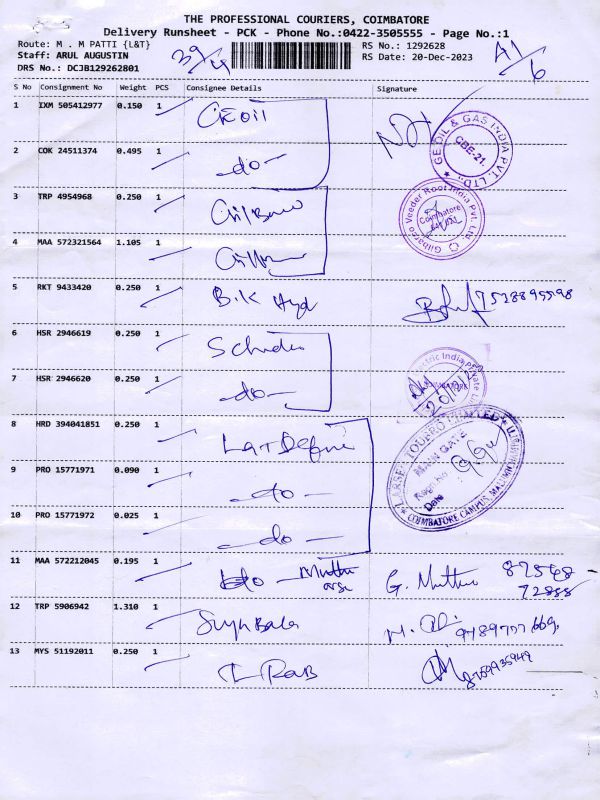 THE PROFESSIONAL COURIERS, COIMBATORE
Delivery Runsheet - PCK - Phone No.:0422-3505555 - Page No.:1
Route: M . M PATTI {L&T} RS No.: 1292628
Staff: ARUL AUGUSTIN RS Date: 20-Dec-2023
DRS No.: DCJB129262801
39/4
A1/6
S No Consignment No Weight PCS Consignee Details Signature
1 IXM 505412977 0.150 1 GE Oil
GE OIL & GAS INDIA PVT. LTD. CBE-21.
2 COK 24511374 0.495 1 -do-
3 TRP 4954968 0.250 1
Gilbarco Veeder Root India Pvt. Ltd. Coimbatore
4 MAA 572321564 1.105 1
5 RKT 9433420 0.250 1 B.K Hyd
6 HSR 2946619 0.250 1
Electric India Private
7 HSR 2946620 0.250 1 -do- 20/12/23
8 HRD 394041851 0.250 1 L&T Defence
LARSEN & TOUBRO LIMITED
MAIN GATE
Regn. No
Date
COIMBATORE CAMPUS,
9 PRO 15771971 0.090 1 -do-
10 PRO 15771972 0.025 1 -do-
11 MAA 572212045 0.195 1 -do- Muthu G. Muthu 87548 72888
12 TRP 5906942 1.310 1 Suya Bala 9489777669
13 MYS 51192011 0.250 1